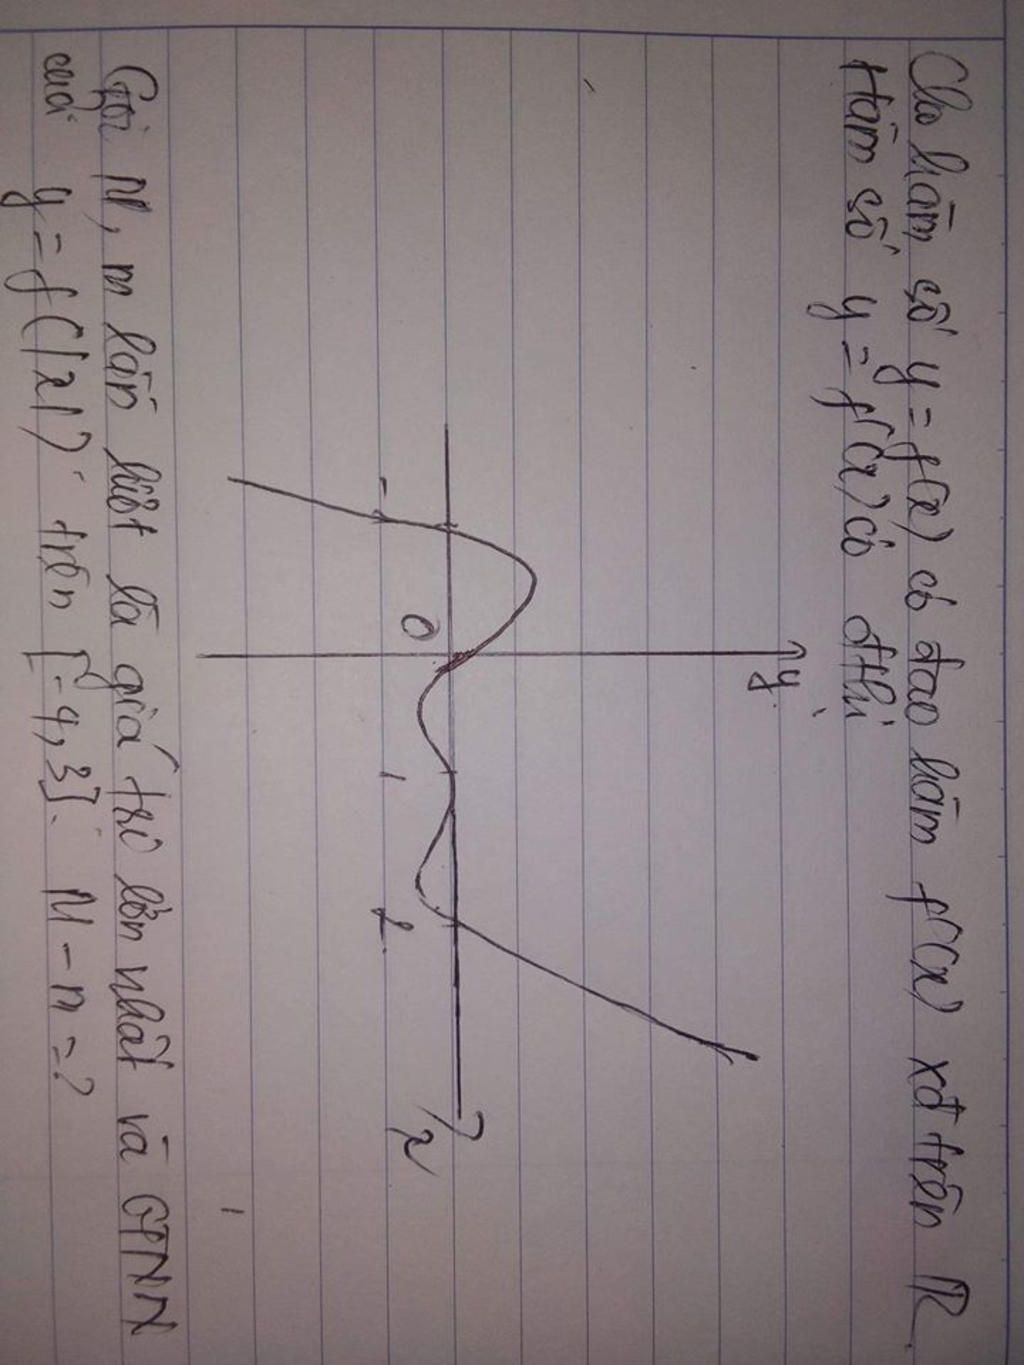 Cho hàm số y = f(x) có đạo hàm f'(x) xđ trên R.
Hàm số y = f'(x) có đthị
y
O
-
1
2
x
Gọi M, m lần lượt là giá trị lớn nhất và GTNN
của y = f(|x|) trên [-4,3]. M - m = ?